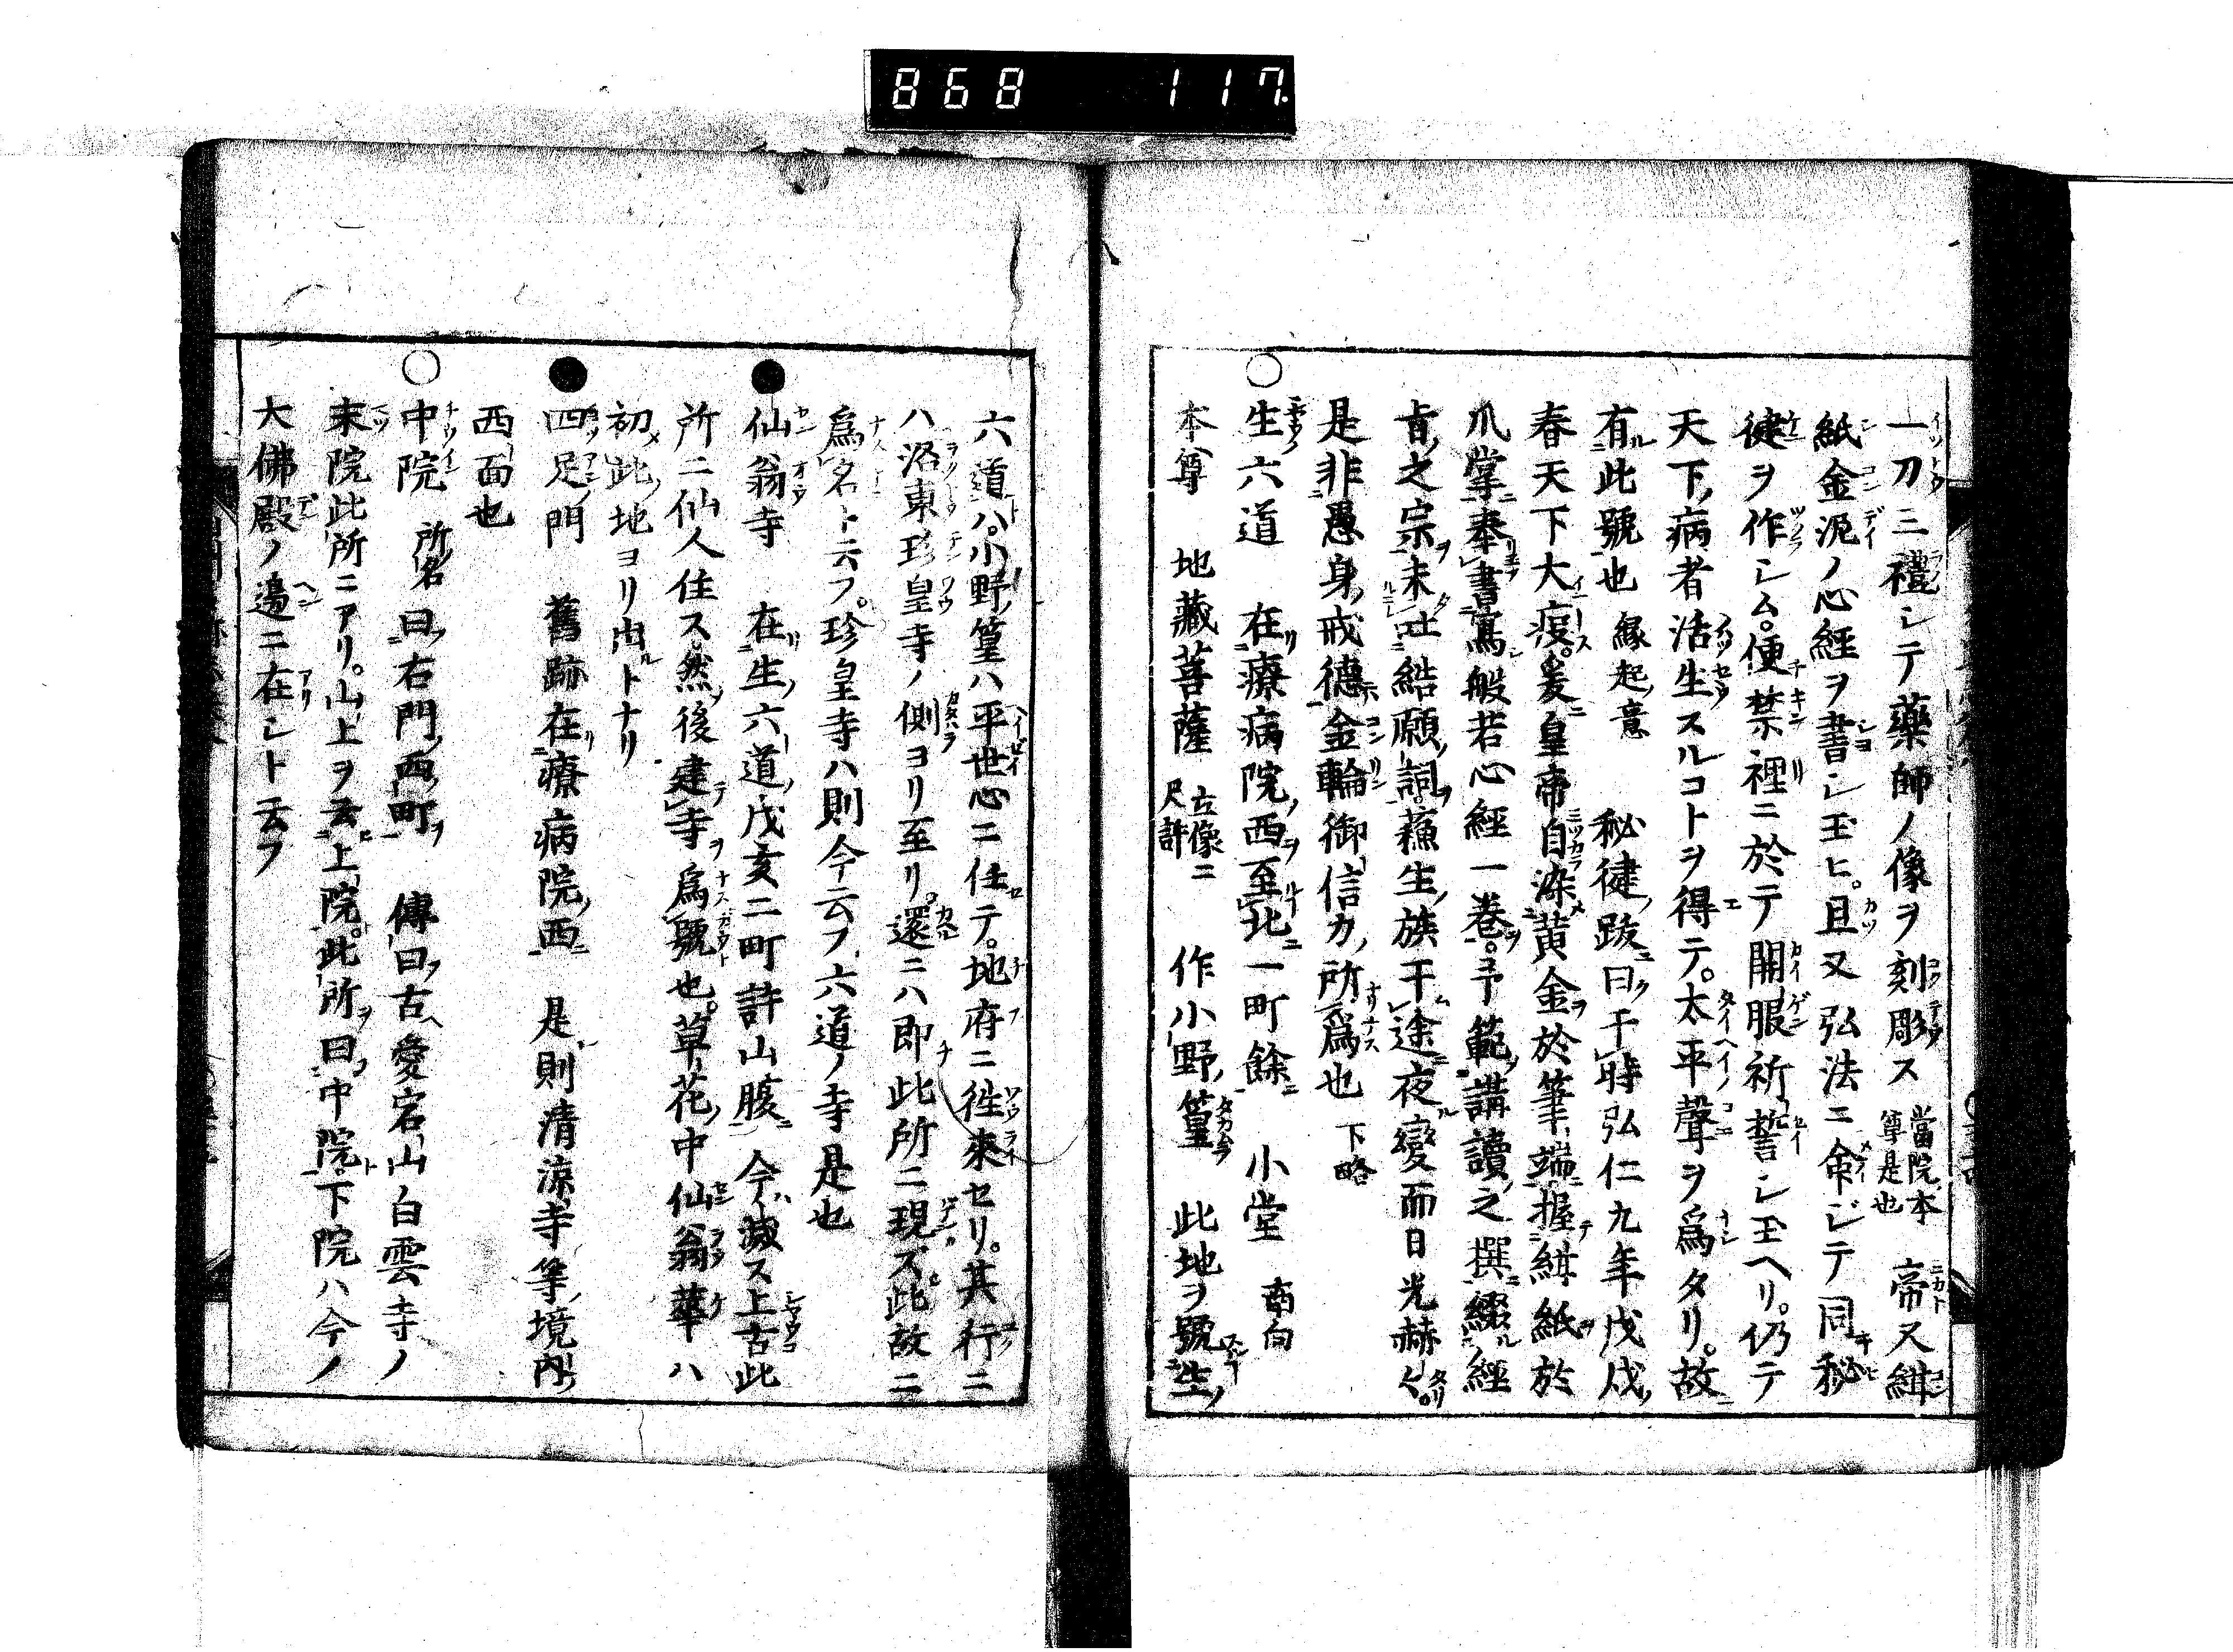 868 117
一刀三禮シテ藥師ノ像ヲ刻彫ス 當院本尊是也 帝又紺
紙金泥ノ心經ヲ書シ玉ヒ。且又弘法ニ命ジテ同秘
鍵ヲ作シム。便禁裡ニ於テ開眼祈誓シ玉ヘリ。仍テ
天下ノ病者活生スルコトヲ得テ。太平聲ヲ爲タリ。故
有此號也 縁起ノ意 秘鍵ノ跋曰于時弘仁九年戊戌ノ
春天下大疫。爰皇帝自染黄金於筆端握紺紙於
爪掌奉書寫般若心經一巻。予範講讀之撰綴經
旨之宗未吐結願詞蘇生族于途夜變而日光赫〱。
是非愚身戒德金輪御信力ノ所爲也 下略
○生六道 在療病院ノ西至北一町餘 小堂 南向
本尊 地藏菩薩 立像二尺許 作小野篁 此地ヲ號生
六道ハ。小野ノ篁ハ平世心ニ任テ。地府ニ徃來セリ。其行ニ
ハ洛東珍皇寺ノ側ヨリ至リ。還ニハ即此所ニ現ズ。此故ニ
爲名ト云フ。珍皇寺ハ則今云フ六道ノ寺是也
●仙翁寺 在生六道ノ戊亥二町許山腹 今ハ滅ス上古此
所ニ仙人住ス。然後建寺爲號也。草花ノ中仙翁華ハ
初メ此地ヨリ出ルトナリ
●四足門 舊跡在療病院ノ西 是則清涼寺等ノ境内ノ
西面也
○中院 所名 曰右門ノ西町 傳曰古ヘ愛宕山白雲寺ノ
末院此所ニアリ。山上ヲ云上院。此所曰中院。下院ハ今ノ
大佛殿ノ邉ニ在シト云フ